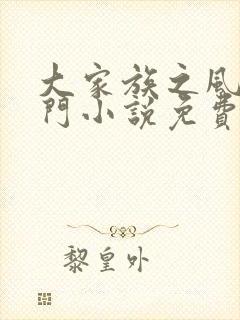 大家族之風
門小說免費
黎皇外